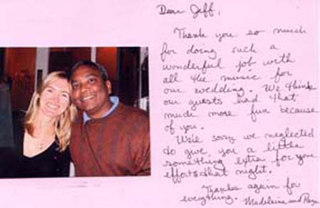 Dear Jeff,
Thank you so much
for doing such a
wonderful job with
all the music for
our wedding. We think
our guests had that
much more fun because
of you.
We're sorry we neglected
to give you a little
something extra for your
efforts that night.
Thanks again for
everything. Madeleine and